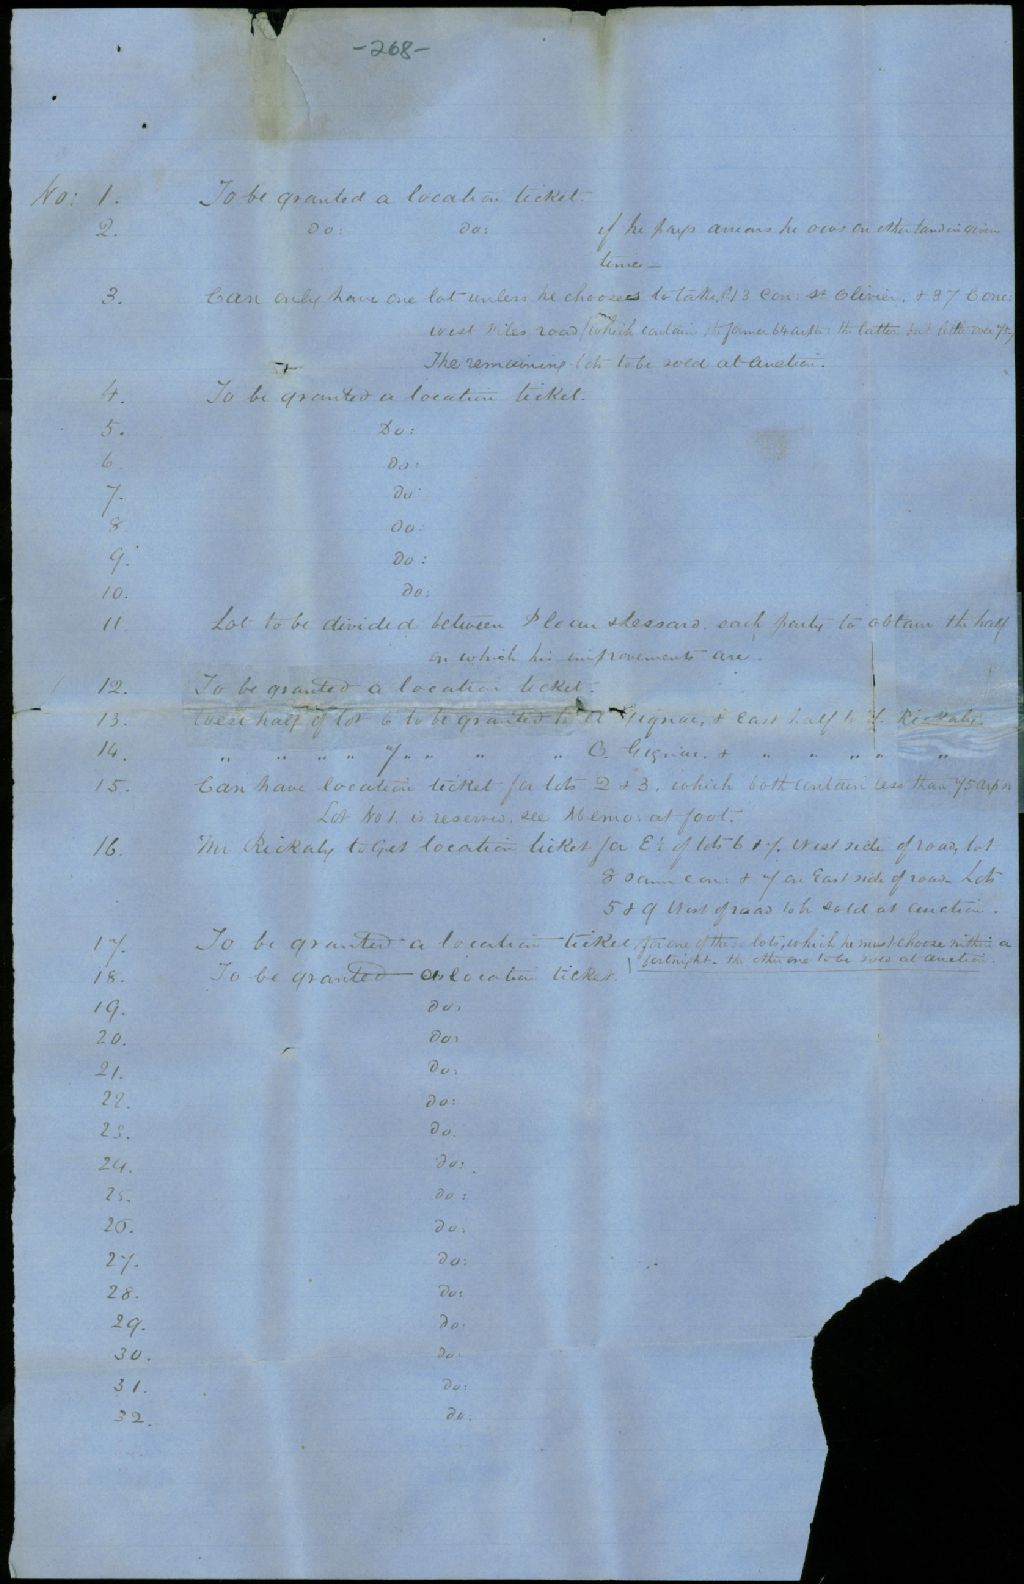 -268-
No: 1. To be granted a location ticket.
2. do: do: if he pays arrears he owes on other land in given
time -
3. Can only have one lot unless he chooses to take 13 Con: St Olivier, & 37 Conc:
west side road (which contain, the former 64 arpts the latter but little over 75)
The remaining lots to be sold at auction.
4. To be granted a location ticket.
5. Do:
6 do:
7. do:
8. do:
9. do:
10. do:
11. Lot to be divided between & Lessard, each party to obtain the half
on which his improvements are.
12. To be granted a location ticket.
13. West half of lot 6 to be granted to A Gignac, & East half to Rickaby.
14. " " " " 7 " " " " O. Gignac, & " " " " "
15. Can have location ticket for lots 2 & 3, which both contain less than 75 arpts
Lot No 1. is reserved, see Memo: at foot.
16. Mr Rickaby to get location ticket for E½ of lots 6 & 7. West side of road, lot
8 same con: & 7 on East side of road. Lots
5 & 9 West of road to be sold at auction.
17. To be granted a location ticket, for one of these lots, which he must choose within a
fortnight. the other one to be sold at auction.
18. To be granted a location ticket.
19. do:
20. do:
21. do:
22. do:
23. do.
24. do:
25. do:
26. do:
27. do:
28. do:
29. do.
30. do.
31. do:
32. do.